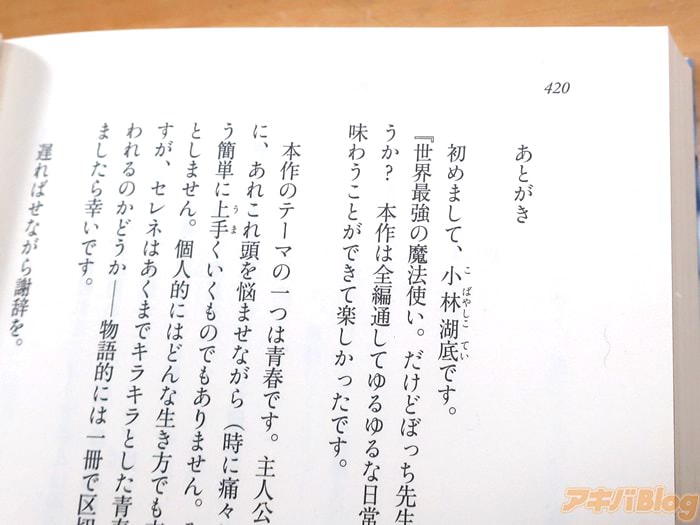 420
あとがき
初めまして、小林湖底です。
こばやしこてい
『世界最強の魔法使い。だけどぼっち先生
うか？　本作は全編通してゆるゆるな日常
味わうことができて楽しかったです。
本作のテーマの一つは青春です。主人公
に、あれこれ頭を悩ませながら（時に痛々
う簡単に上手くいくものでもありません。
うま
としません。個人的にはどんな生き方でも
すが、セレネはあくまでキラキラとした青春
われるのかどうか――物語的には一冊で区切
ましたら幸いです。
遅ればせながら謝辞を。
アキバBlog